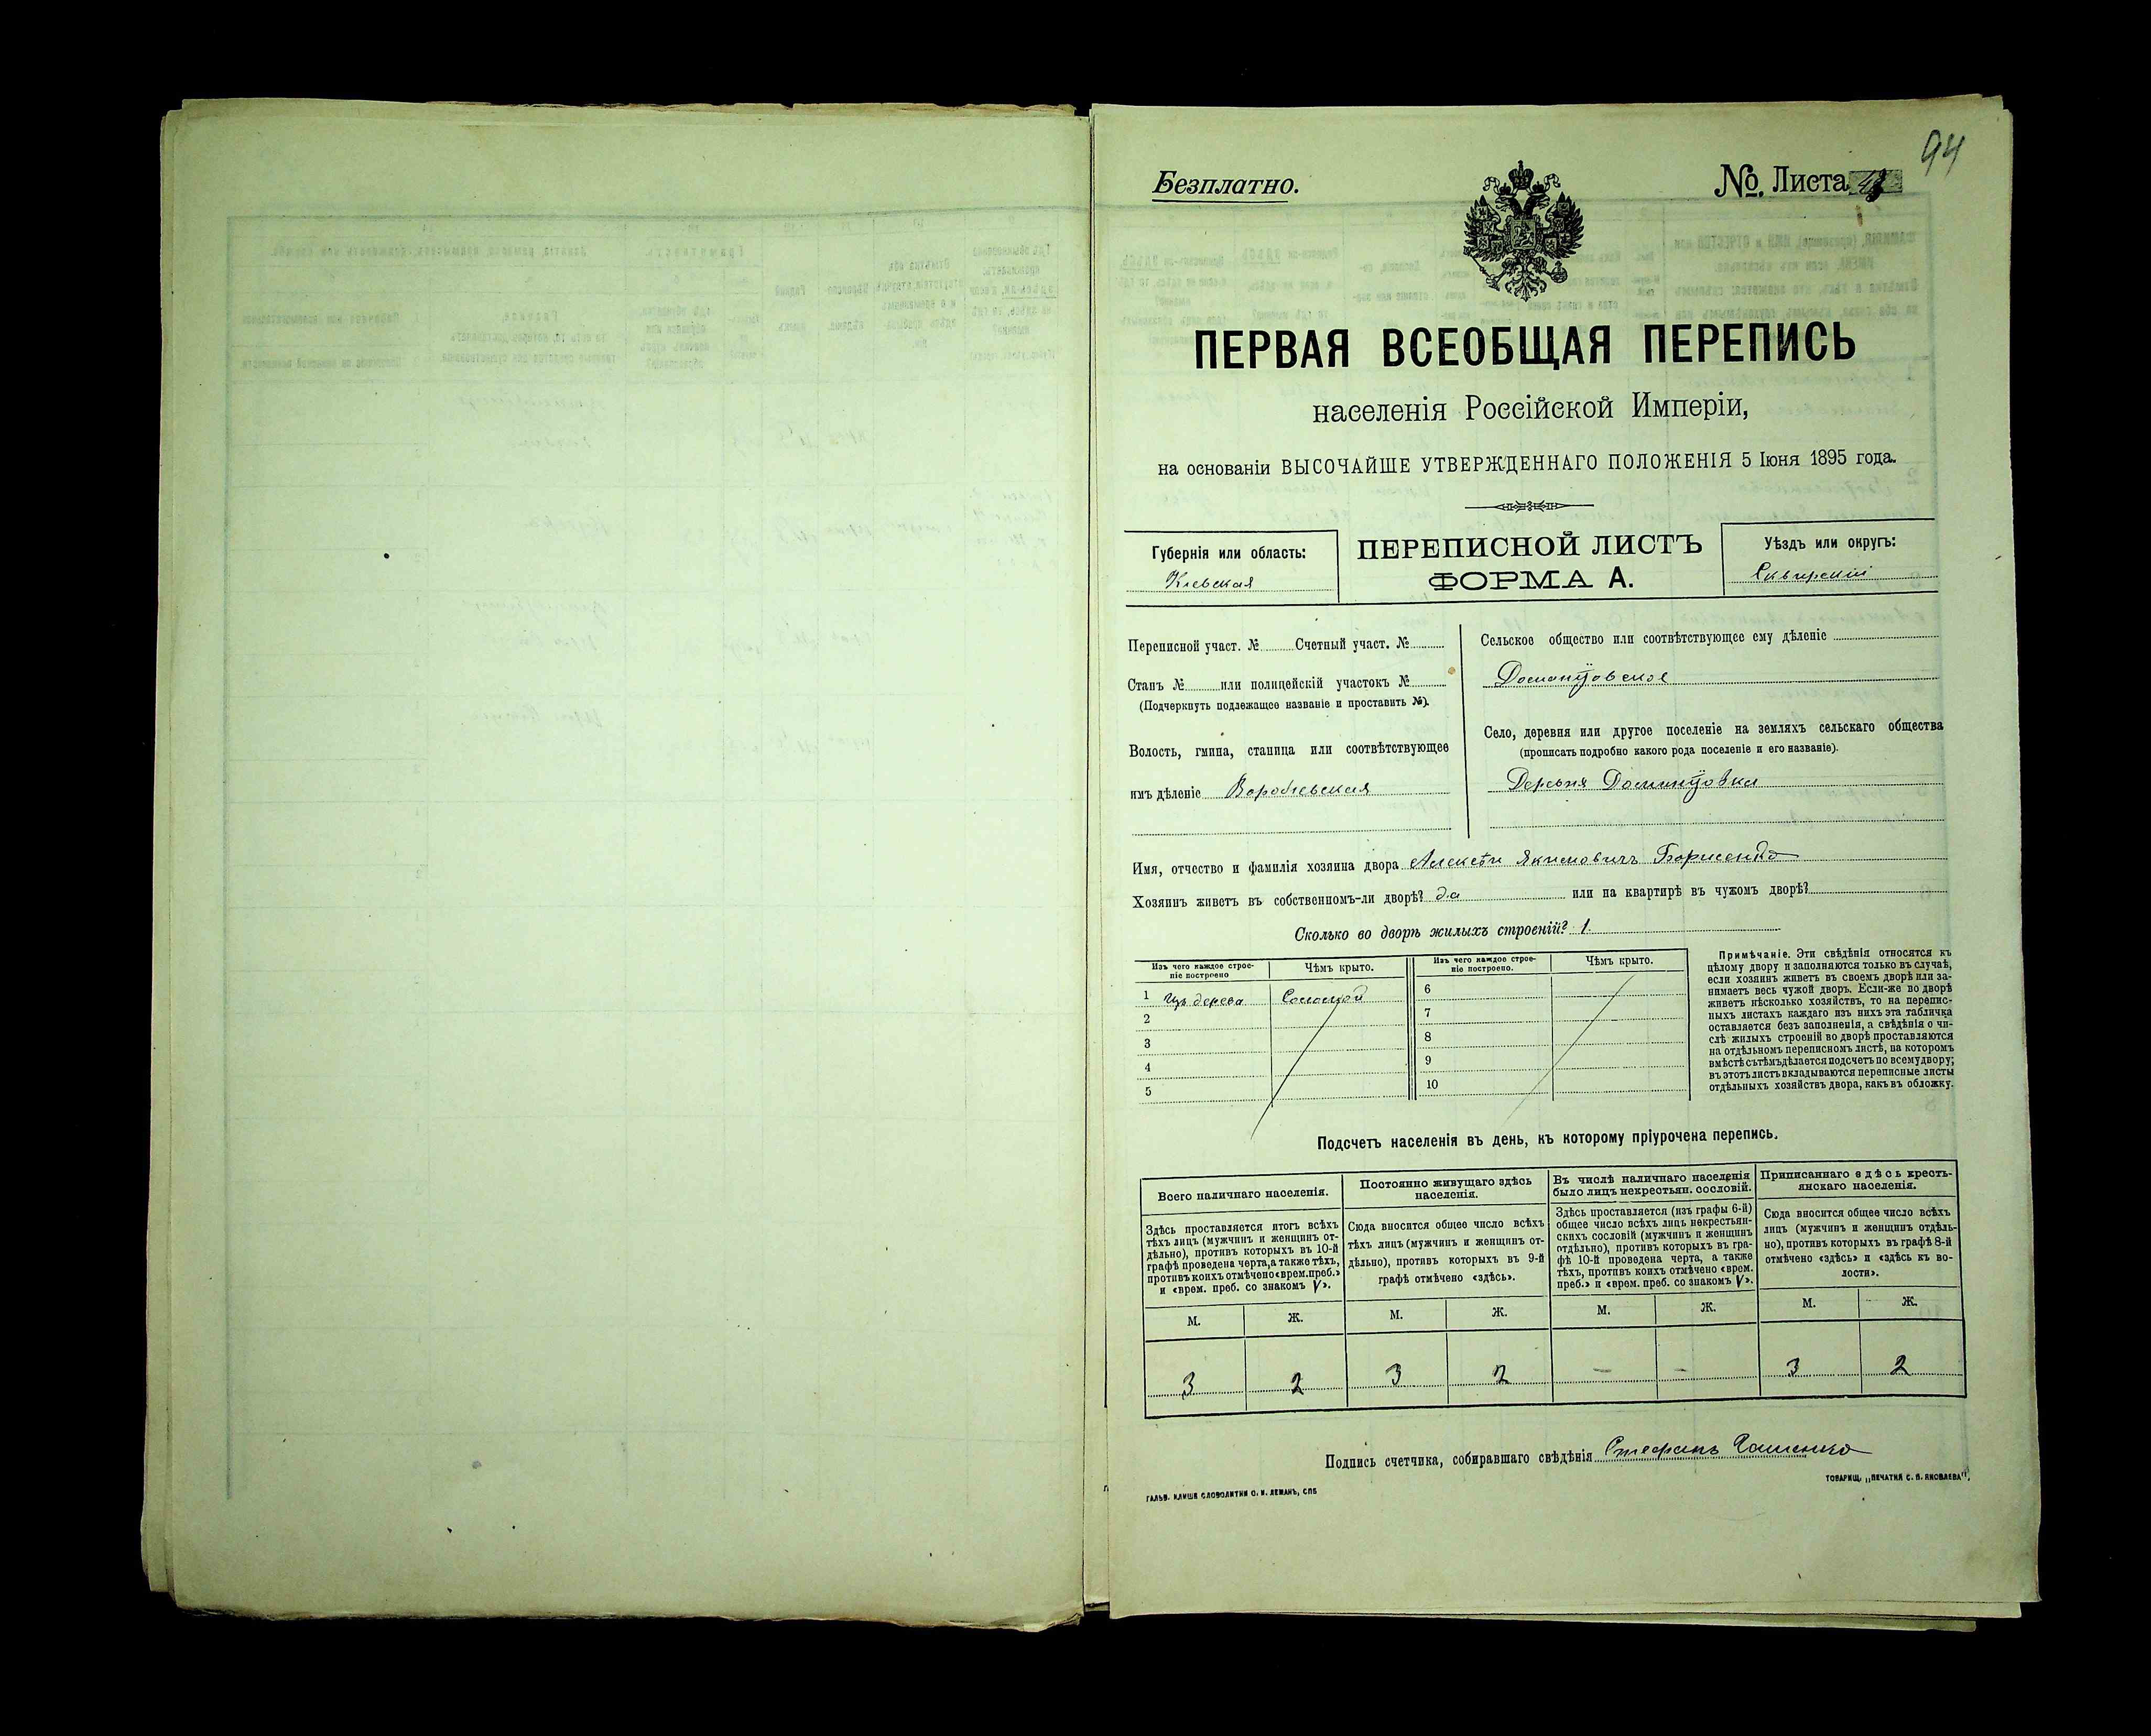 94
Безплатно.
№. Листа
ПЕРВАЯ ВСЕОБЩАЯ ПЕРЕПИСЬ
населенія Россійской Имперіи,
на основаніи ВЫСОЧАЙШЕ УТВЕРЖДЕННАГО ПОЛОЖЕНІЯ 5 Іюня 1895 года.
Губернія или область:
Кіевская
ПЕРЕПИСНОЙ ЛИСТЪ
ФОРМА А.
Уѣздъ или округъ:
Сквирскій
Переписной участ. № Счетный участ. №
Станъ № или полицейскій участокъ №
(Подчеркнуть подлежащее названіе и проставить №).
Волость, гмина, станица или соотвѣтствующее
имъ дѣленіе Воробіевская
Сельское общество или соотвѣтствующее ему дѣленіе
Домантовское
Село, деревня или другое поселеніе на земляхъ сельскаго общества
(прописать подробно какого рода поселеніе и его названіе).
Деревня Домантовка
Имя, отчество и фамилія хозяина двора Алексѣй Якимовичъ Борисенко
Хозяинъ живетъ въ собственномъ-ли дворѣ? да или на квартирѣ въ чужомъ дворѣ?
Сколько во дворѣ жилыхъ строеній? 1.
Изъ чего каждое строе-
ніе построено
Чѣмъ крыто.
Изъ чего каждое строе-
ніе построено.
Чѣмъ крыто.
1 Изъ дерева Соломой
2
3
4
5
6
7
8
9
10
Примѣчаніе. Эти свѣдѣнія относятся къ
цѣлому двору и заполняются только въ случаѣ,
если хозяинъ живетъ въ своемъ дворѣ или за-
нимаетъ весь чужой дворъ. Если-же во дворѣ
живетъ нѣсколько хозяйствъ, то на перепис-
ныхъ листахъ каждаго изъ нихъ эта табличка
оставляется безъ заполненія, а свѣдѣнія о чи-
слѣ жилыхъ строеній во дворѣ проставляются
на отдѣльномъ переписномъ листѣ, на которомъ
вмѣстѣ съ тѣмъ дѣлается подсчетъ по всему двору;
въ этотъ листъ вкладываются переписные листы
отдѣльныхъ хозяйствъ двора, какъ въ обложку.
Подсчетъ населенія въ день, къ которому пріурочена перепись.
Всего наличнаго населенія.
Здѣсь проставляется итогъ всѣхъ
тѣхъ лицъ (мужчинъ и женщинъ от-
дѣльно), противъ которыхъ въ 10-й
графѣ проведена черта, а также тѣхъ,
противъ коихъ отмѣчено «врем. преб.»
и «врем. преб. со знакомъ V».
Постоянно живущаго здѣсь
населенія.
Сюда вносится общее число всѣхъ
тѣхъ лицъ (мужчинъ и женщинъ от-
дѣльно), противъ которыхъ въ 9-й
графѣ отмѣчено «здѣсь».
Въ числѣ наличнаго населенія
было лицъ некрестьян. сословій.
Здѣсь проставляется (изъ графы 6-й)
общее число всѣхъ лицъ некрестьян-
скихъ сословій (мужчинъ и женщинъ
отдѣльно), противъ которыхъ въ гра-
фѣ 10-й проведена черта, а также
тѣхъ, противъ коихъ отмѣчено «врем.
преб.» и «врем. преб. со знакомъ V».
Приписаннаго здѣсь кресть-
янскаго населенія.
Сюда вносится общее число всѣхъ
лицъ (мужчинъ и женщинъ отдѣль-
но), противъ которыхъ въ графѣ 8-й
отмѣчено «здѣсь» и «здѣсь къ во-
лости».
М. Ж. М. Ж. М. Ж. М. Ж.
3 2 3 2 — — 3 2
Подпись счетчика, собиравшаго свѣдѣнія Стефанъ
ГАЛЬВ. КЛИШЕ СЛОВОЛИТНИ О. И. ЛЕМАНЪ, СПБ
ТОВАРИЩ. „ПЕЧАТНЯ С. П. ЯКОВЛЕВА".